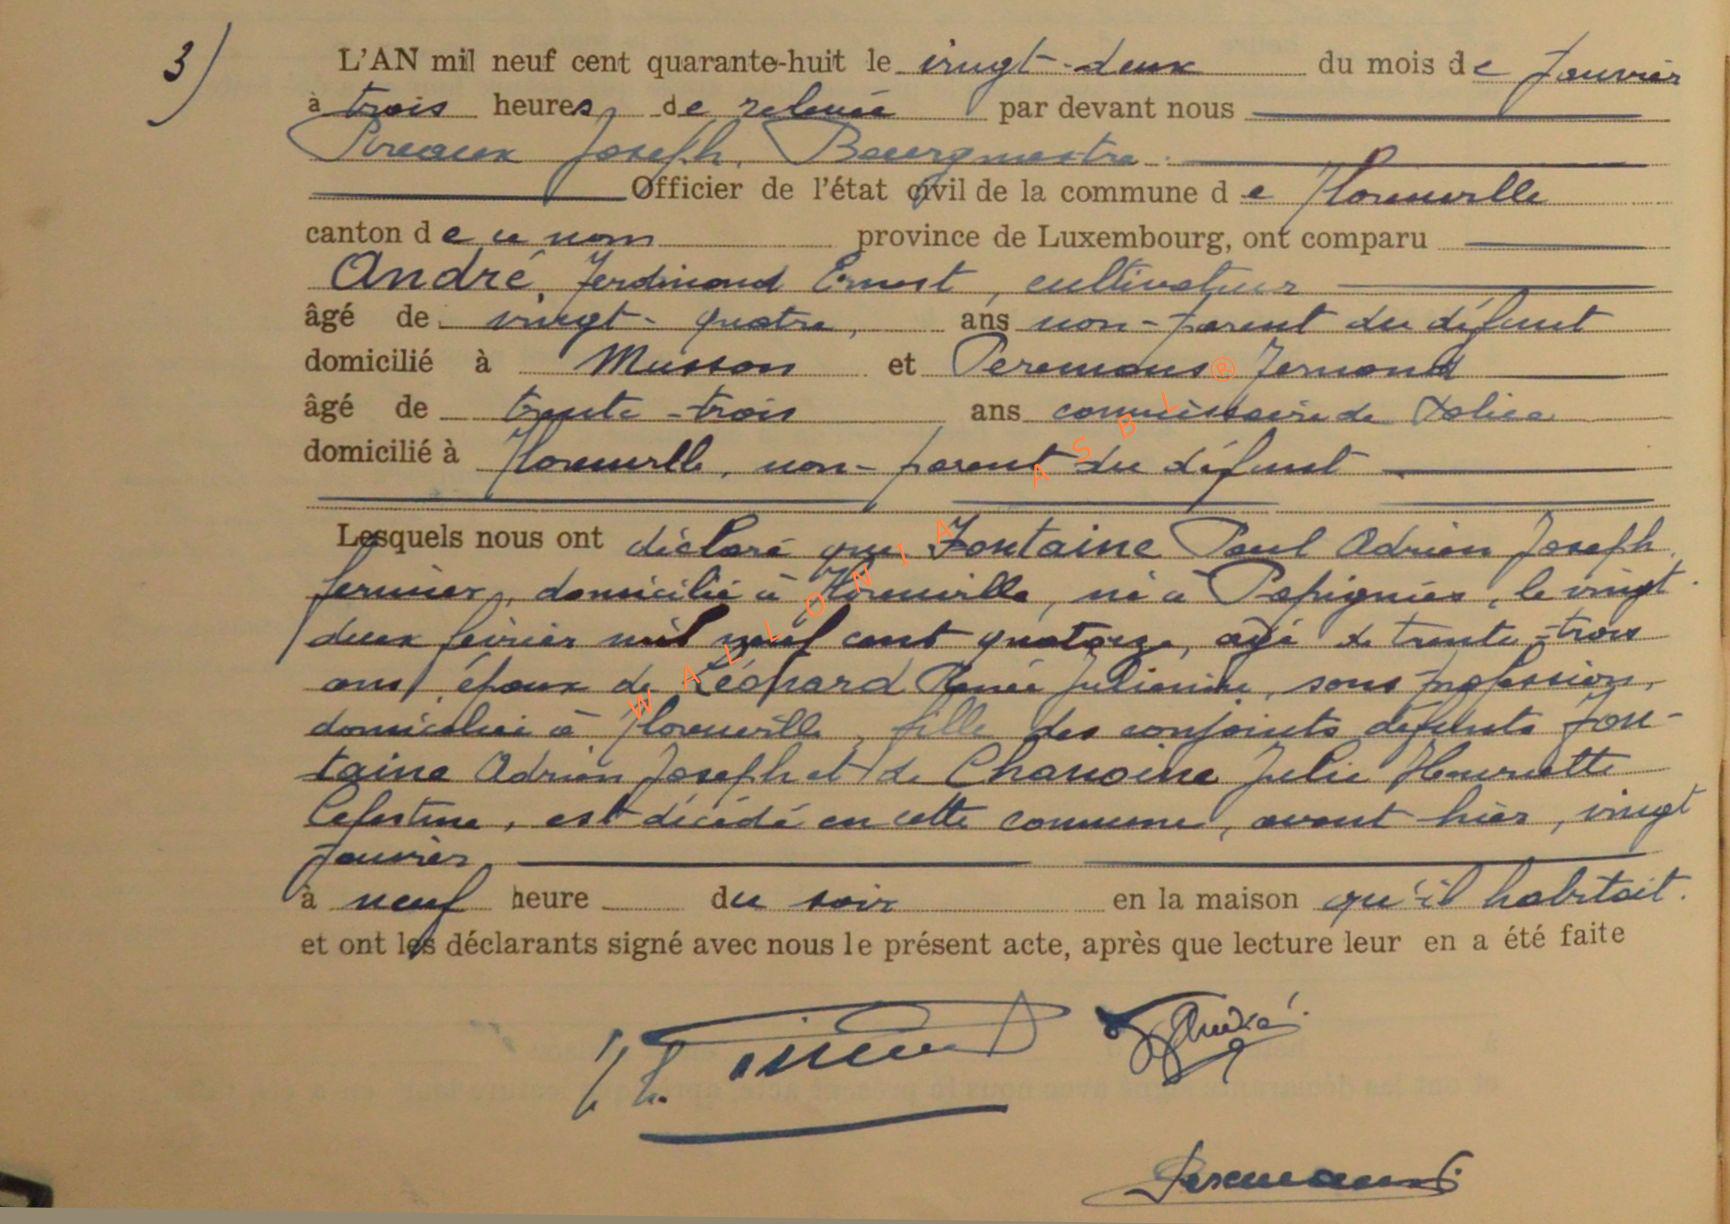 3)
L'AN mil neuf cent quarante-huit le vingt-deux du mois de Janvier
à trois heures de relevée par devant nous
Pireaux Joseph, Bourgmestre
Officier de l'état civil de la commune de Florenville
canton de ce nom province de Luxembourg, ont comparu
André, Ferdinand Ernest, cultivateur
âgé de vingt-quatre, ans non-parent du défunt
domicilié à Musson et Peremans Fernand
âgé de trente-trois ans commissaire de Police
domicilié à Florenville, non-parent du défunt
Lesquels nous ont déclaré que Fontaine Paul Adrien Joseph,
fermier, domicilié à Florenville, né à Papignies, le vingt-
deux février mil neuf cent quatorze, âgé de trente-trois
ans, époux de Léonard Renée Julienne, sans profession,
domiciliée à Florenville, fille des conjoints défunts Fon-
taine Adrien Joseph et de Chanoine Julie Henriette
Célestine, est décédé en cette commune, avant hier, vingt
Janvier,
à neuf heure du soir en la maison qu'il habitait.
et ont les déclarants signé avec nous le présent acte, après que lecture leur en a été faite
André
Peremans
WALLONIA ASBL ®